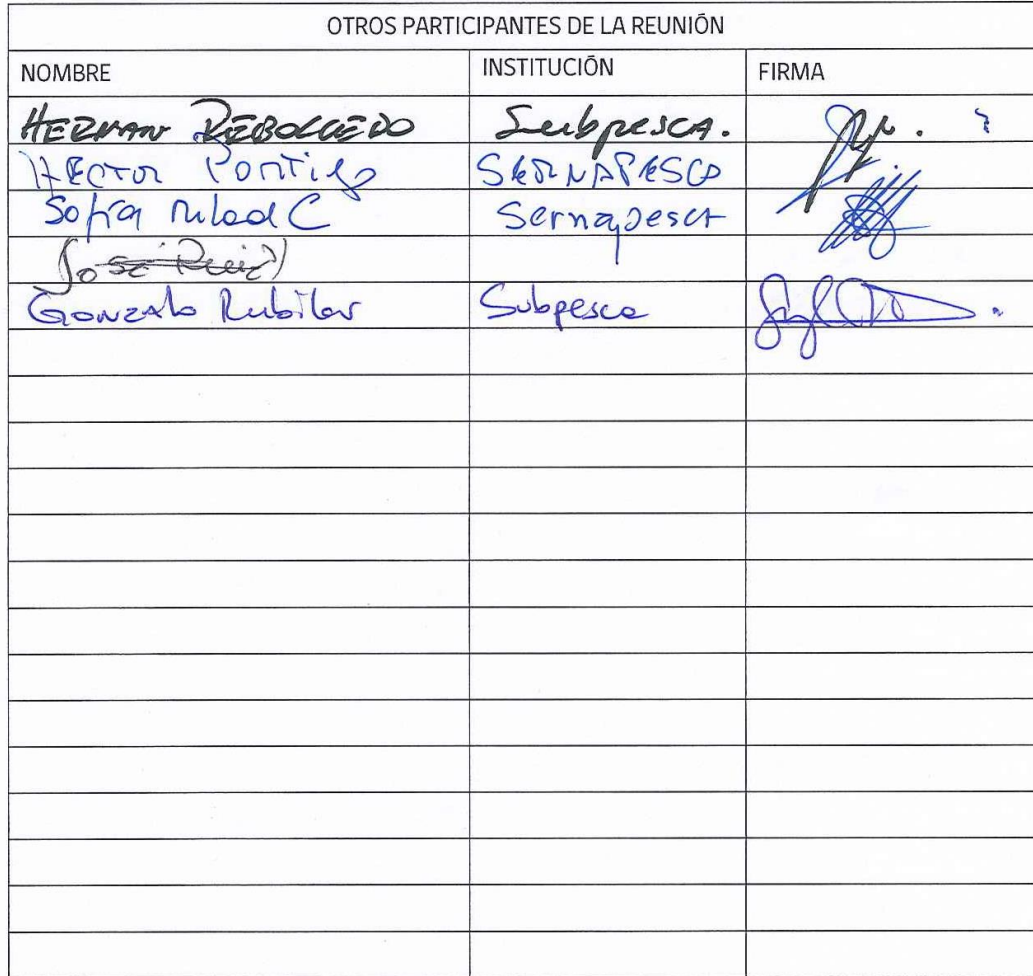 OTROS PARTICIPANTES DE LA REUNIÓN
NOMBRE INSTITUCIÓN FIRMA
HERNAN REBOLLEDO Subpesca.
HECTOR PONTIGO SERNAPESCA
Sofía Milad C Sernapesca
José Ruiz
Gonzalo Rubilar Subpesca